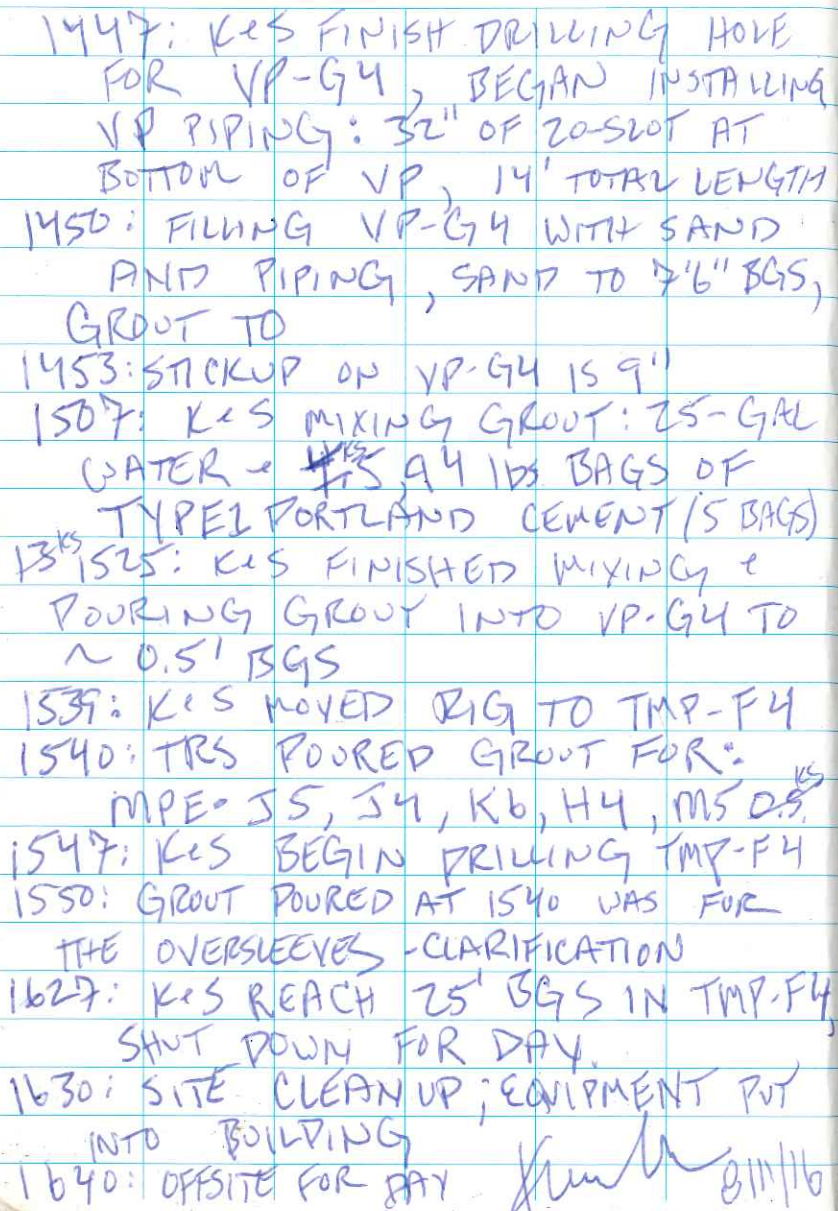 1447: K&S FINISH DRILLING HOLE
FOR VP-G4, BEGAN INSTALLING
VP PIPING: 32" OF 20-SLOT AT
BOTTOM OF VP, 14' TOTAL LENGTH
1450: FILLING VP-G4 WITH SAND
AND PIPING, SAND TO 7'6" BGS,
GROUT TO
1453: STICKUP ON VP-G4 IS 9"
1507: K&S MIXING GROUT: 25-GAL
WATER & KS 5, 94 lbs BAGS OF
TYPE 1 PORTLAND CEMENT (5 BAGS)
13 KS 1525: K&S FINISHED MIXING &
POURING GROUT INTO VP-G4 TO
~ 0.5' BGS
1539: K&S MOVED RIG TO TMP-F4
1540: TRS POURED GROUT FOR:
MPE-J5, J4, K6, H4, M5 KS
1547: K&S BEGIN DRILLING TMP-F4
1550: GROUT POURED AT 1540 WAS FOR
THE OVERSLEEVES - CLARIFICATION
1627: K&S REACH 25' BGS IN TMP-F4,
SHUT DOWN FOR DAY.
1630: SITE CLEAN UP; EQUIPMENT PUT
INTO BUILDING
1640: OFFSITE FOR DAY 8/11/16